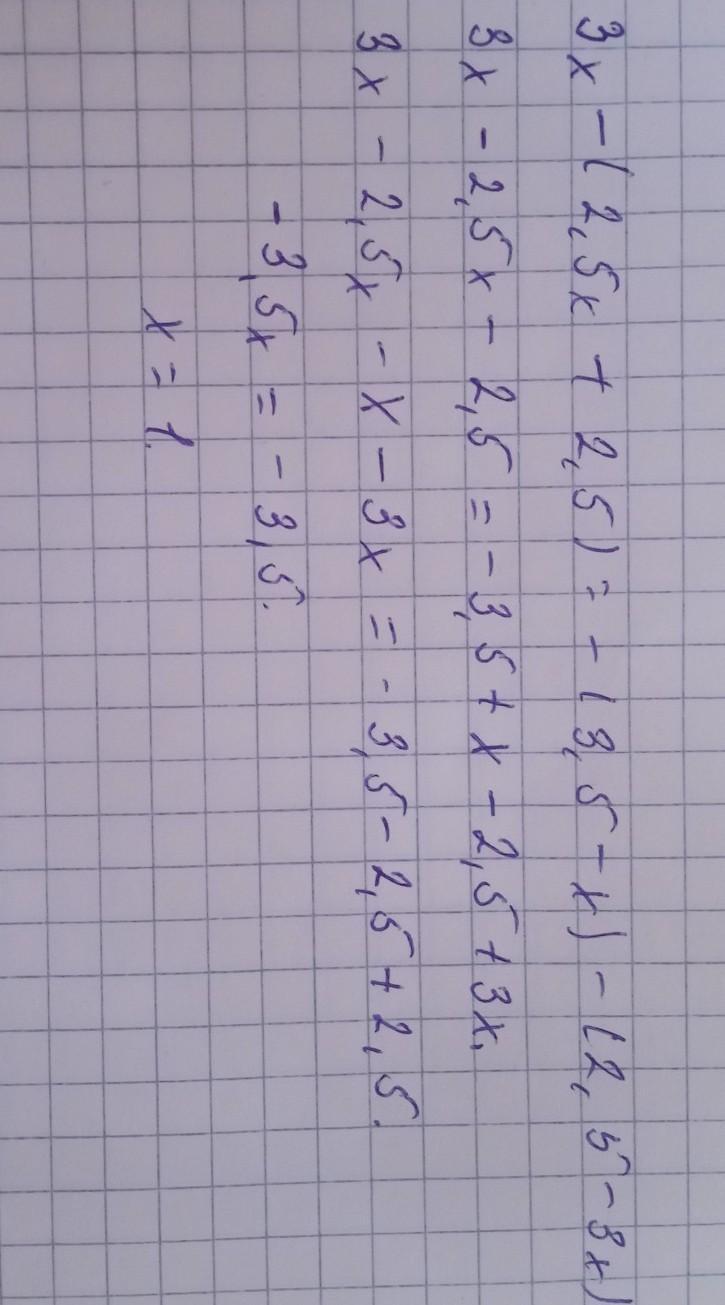 3x - (2,5x + 2,5) = - (3,5 - x) - (2,5 - 3x)
3x - 2,5x - 2,5 = - 3,5 + x - 2,5 + 3x,
3x - 2,5x - x - 3x = - 3,5 - 2,5 + 2,5.
- 3,5x = - 3,5.
x = 1.